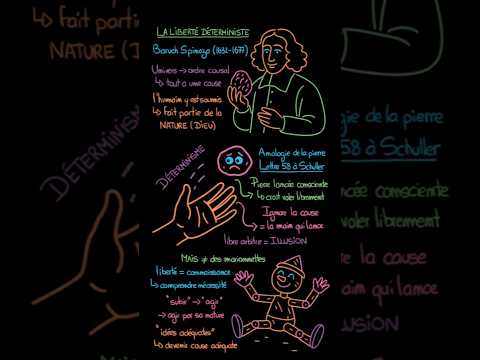 LA LIBERTÉ DÉTERMINISTE
Baruch Spinoza (1632-1677)
Univers → ordre causal
↳ tout a une cause
l'humain y est soumis
↳ Fait partie de la
NATURE (DIEU)
DÉTERMINISME
Analogie de la pierre
Lettre 58 à Schuller
Pierre lancée consciente
↳ croit voler librement
Ignore la cause
= la main qui lance
libre arbitre = ILLUSION
MAIS ≠ des marionnettes
liberté = connaissance
↳ comprendre nécessité
"subir" → "agir"
→ agir par sa nature
"idées adéquates"
↳ devenir cause adéquate
↳ Fait partie
NATURE (D
DÉTERMINISME
de la pierre
58 à Schuller
lancée consciente
voler librement
la cause
main qui lance
ILLUSION